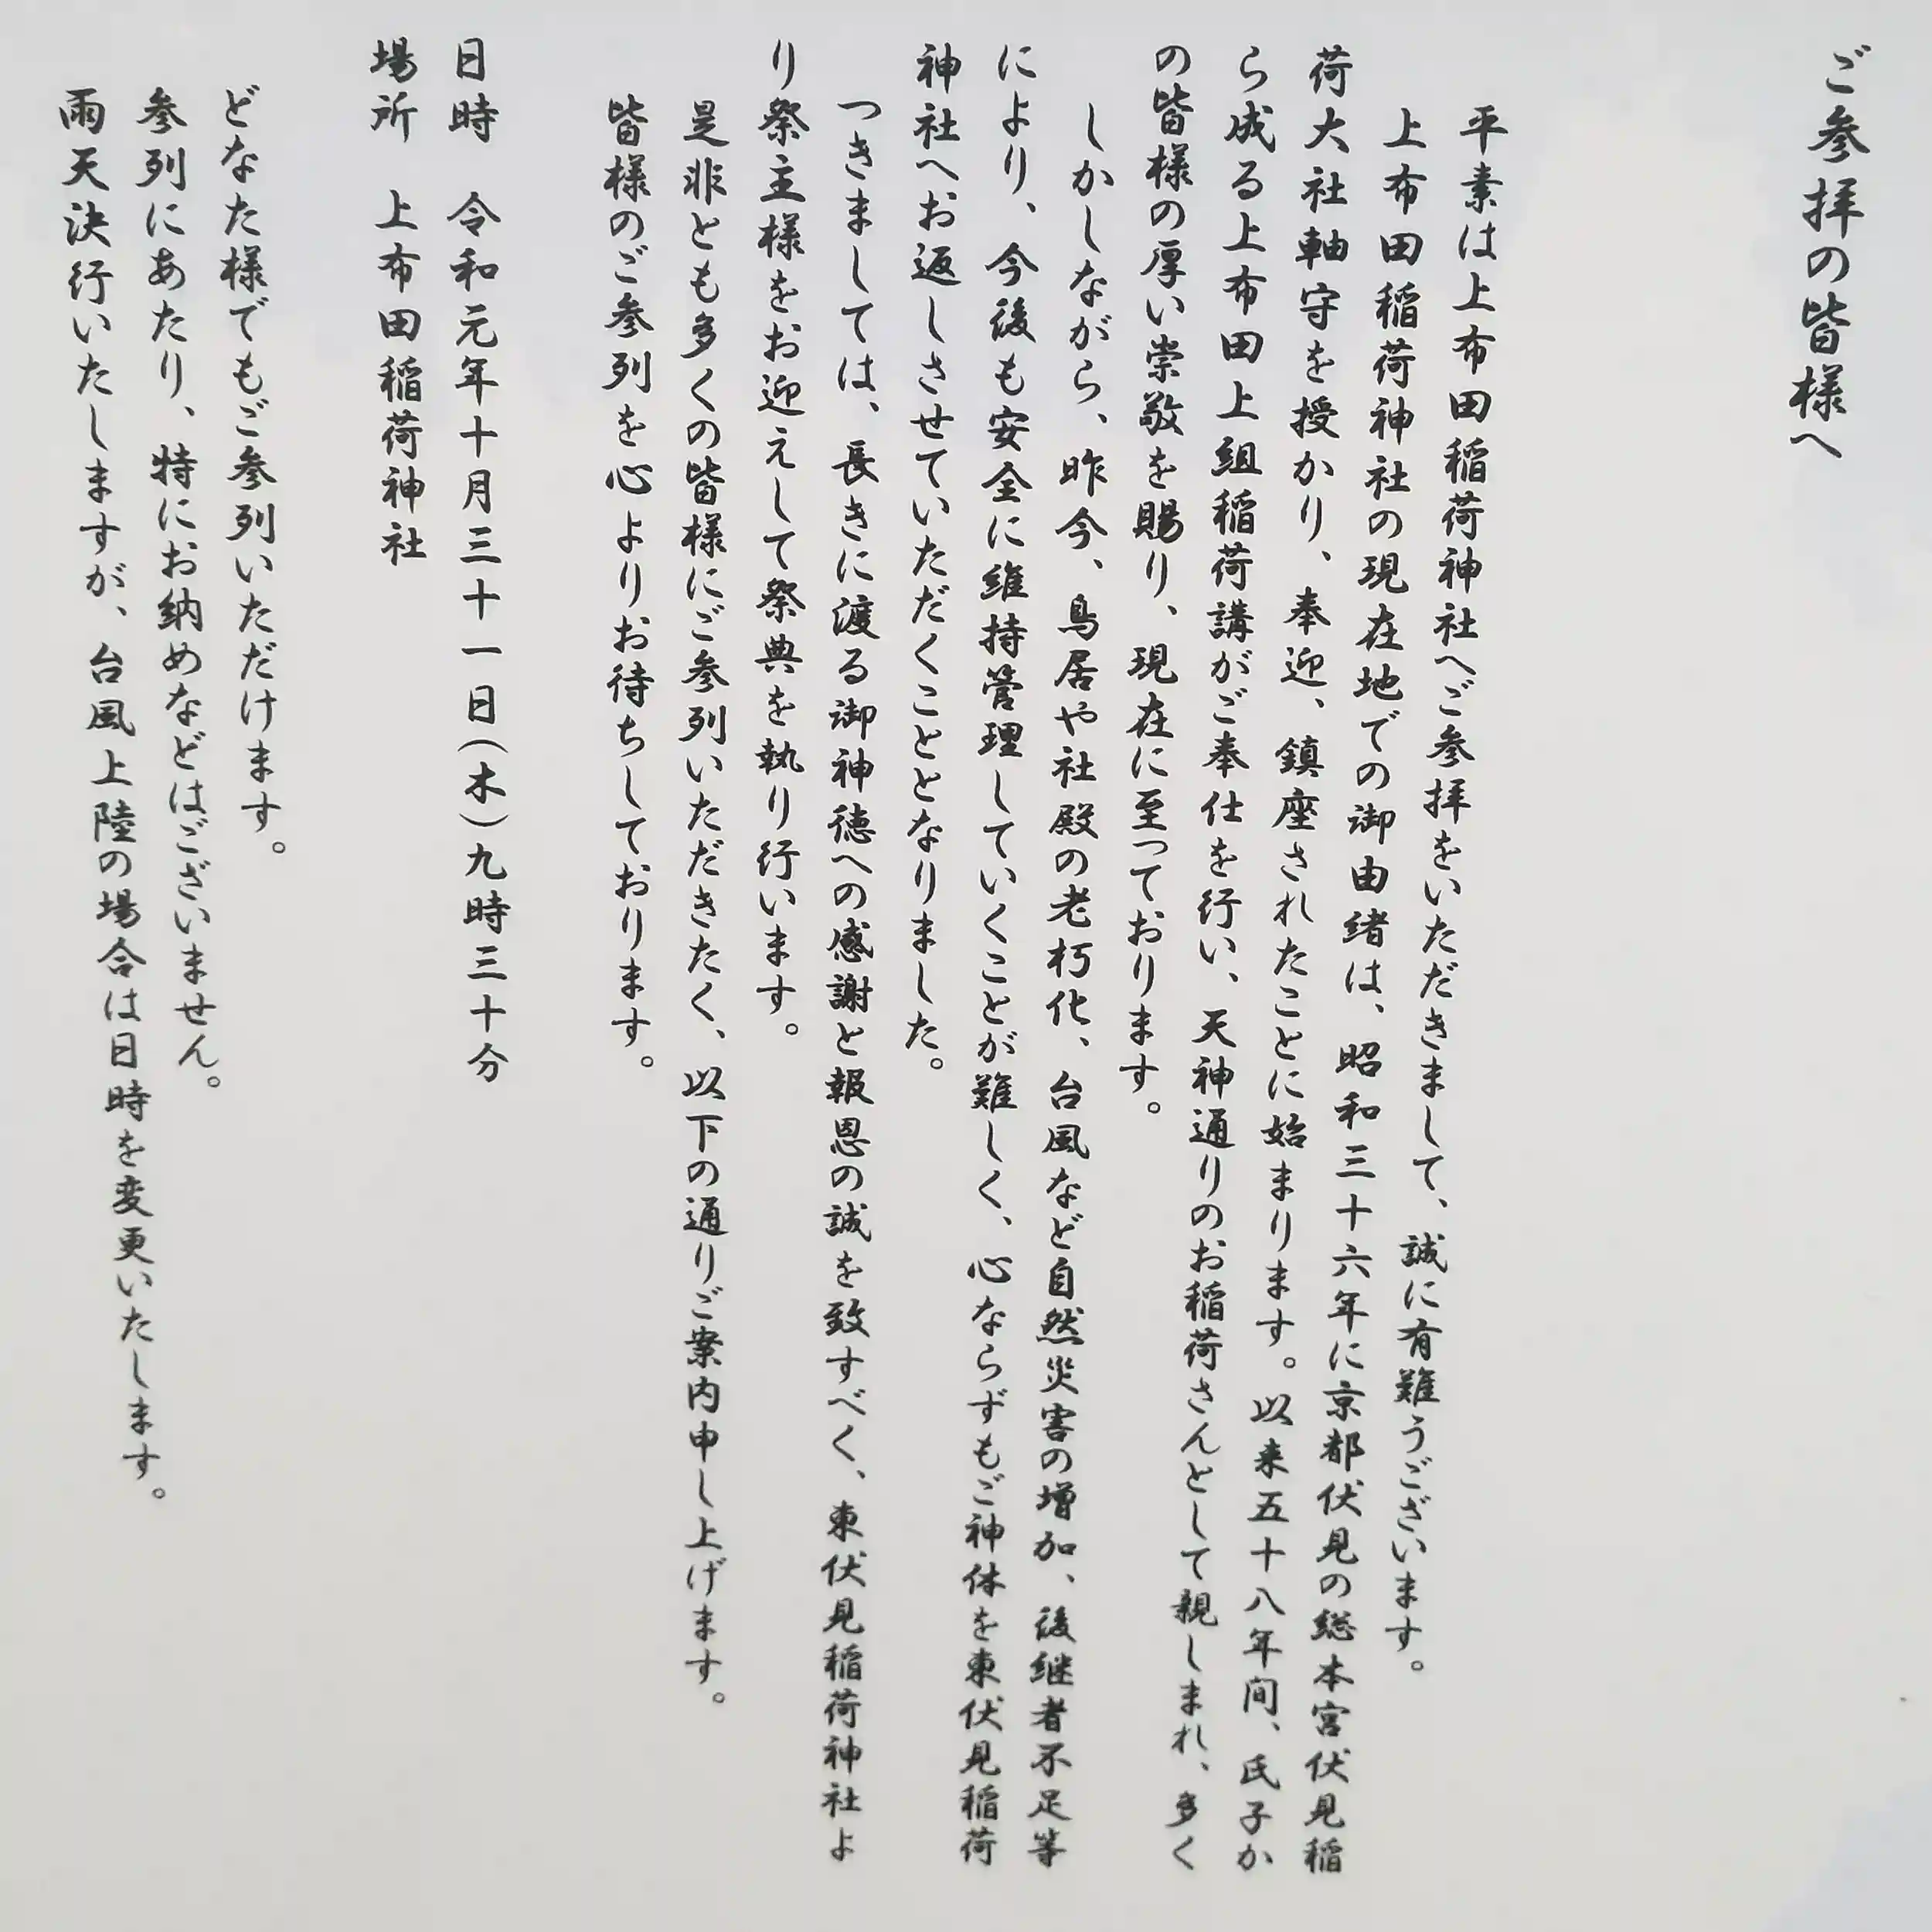 ご参拝の皆様へ
平素は上布田稲荷神社へご参拝をいただきまして、誠に有難うございます。
上布田稲荷神社の現在地での御由緒は、昭和三十六年に京都伏見の総本宮伏見稲
荷大社軸守を授かり、奉迎、鎮座されたことに始まります。以来五十八年间、氏子か
ら成る上布田上組稲荷講がご奉仕を行い、天神通りのお稲荷さんとして親しまれ、多く
の皆様の厚い崇敬を賜り、現在に至っております。
しかしながら、昨今、鳥居や社殿の老朽化、台風など自然災害の増加、後継者不足等
により、今後も安全に維持管理していくことが難しく、心ならずもご神体を東伏見稲荷
神社へお返しさせていただくこととなりました。
つきましては、長きに渡る御神徳への感謝と報恩の誠を致すべく、東伏見稲荷神社よ
り祭主様をお迎えして祭典を執り行います。
是非とも多くの皆様にご参列いただきたく、以下の通りご案内申し上げます。
皆様のご参列を心よりお待ちしております。
日時　令和元年十月三十一日（木）九時三十分
場所　上布田稲荷神社
どなた様でもご参列いただけます。
参列にあたり、特にお納めなどはございません。
雨天決行いたしますが、台風上陸の場合は日時を変更いたします。